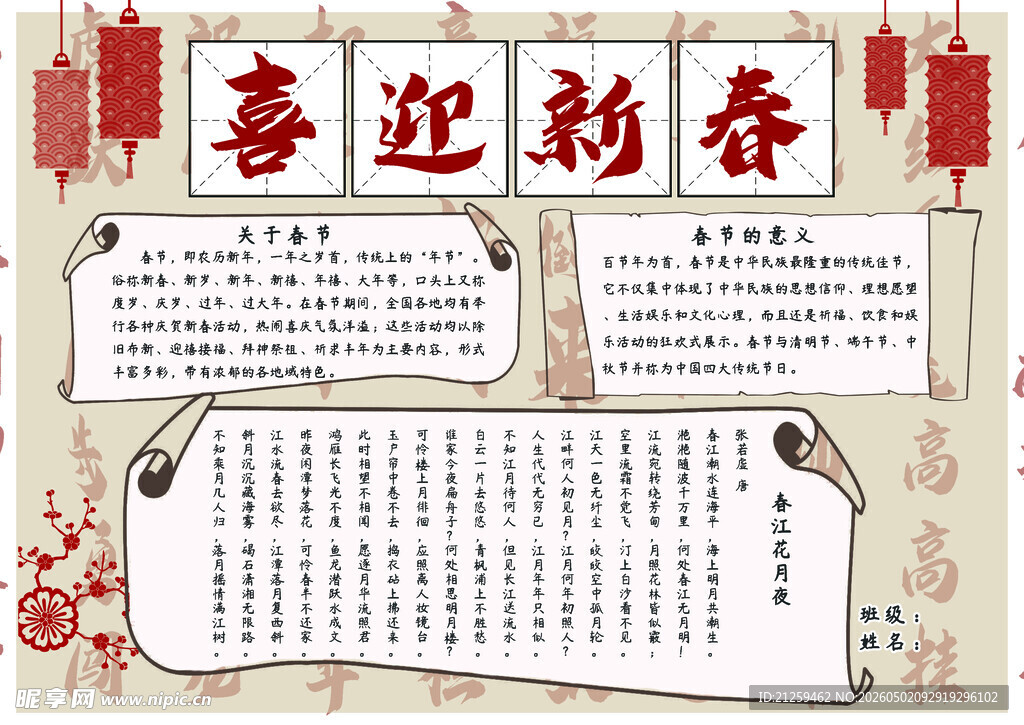 喜迎新春
关于春节
春节，即农历新年，一年之岁首，传统上的“年节”。
俗称新春、新岁、新年、新禧、年禧、大年等，口头上又称
度岁、庆岁、过年、过大年。在春节期间，全国各地均有举
行各种庆贺新春活动，热闹喜庆气氛洋溢；这些活动均以除
旧布新、迎禧接福、拜神祭祖、祈求丰年为主要内容，形式
丰富多彩，带有浓郁的各地域特色。
春节的意义
百节年为首，春节是中华民族最隆重的传统佳节，
它不仅集中体现了中华民族的思想信仰、理想愿望
、生活娱乐和文化心理，而且还是祈福、饮食和娱
乐活动的狂欢式展示。春节与清明节、端午节、中
秋节并称为中国四大传统节日。
春江花月夜
张若虚 唐
春江潮水连海平，海上明月共潮生。
滟滟随波千万里，何处春江无月明！
江流宛转绕芳甸，月照花林皆似霰；
空里流霜不觉飞，汀上白沙看不见。
江天一色无纤尘，皎皎空中孤月轮。
江畔何人初见月？江月何年初照人？
人生代代无穷已，江月年年只相似。
不知江月待何人，但见长江送流水。
白云一片去悠悠，青枫浦上不胜愁。
谁家今夜扁舟子？何处相思明月楼？
可怜楼上月徘徊，应照离人妆镜台。
玉户帘中卷不去，捣衣砧上拂还来。
此时相望不相闻，愿逐月华流照君。
鸿雁长飞光不度，鱼龙潜跃水成文。
昨夜闲潭梦落花，可怜春半不还家。
江水流春去欲尽，江潭落月复西斜。
斜月沉沉藏海雾，碣石潇湘无限路。
不知乘月几人归，落月摇情满江树。
班级：
姓名：
昵享网 www.nipic.cn
ID:21259462 NO:20260502092919296102